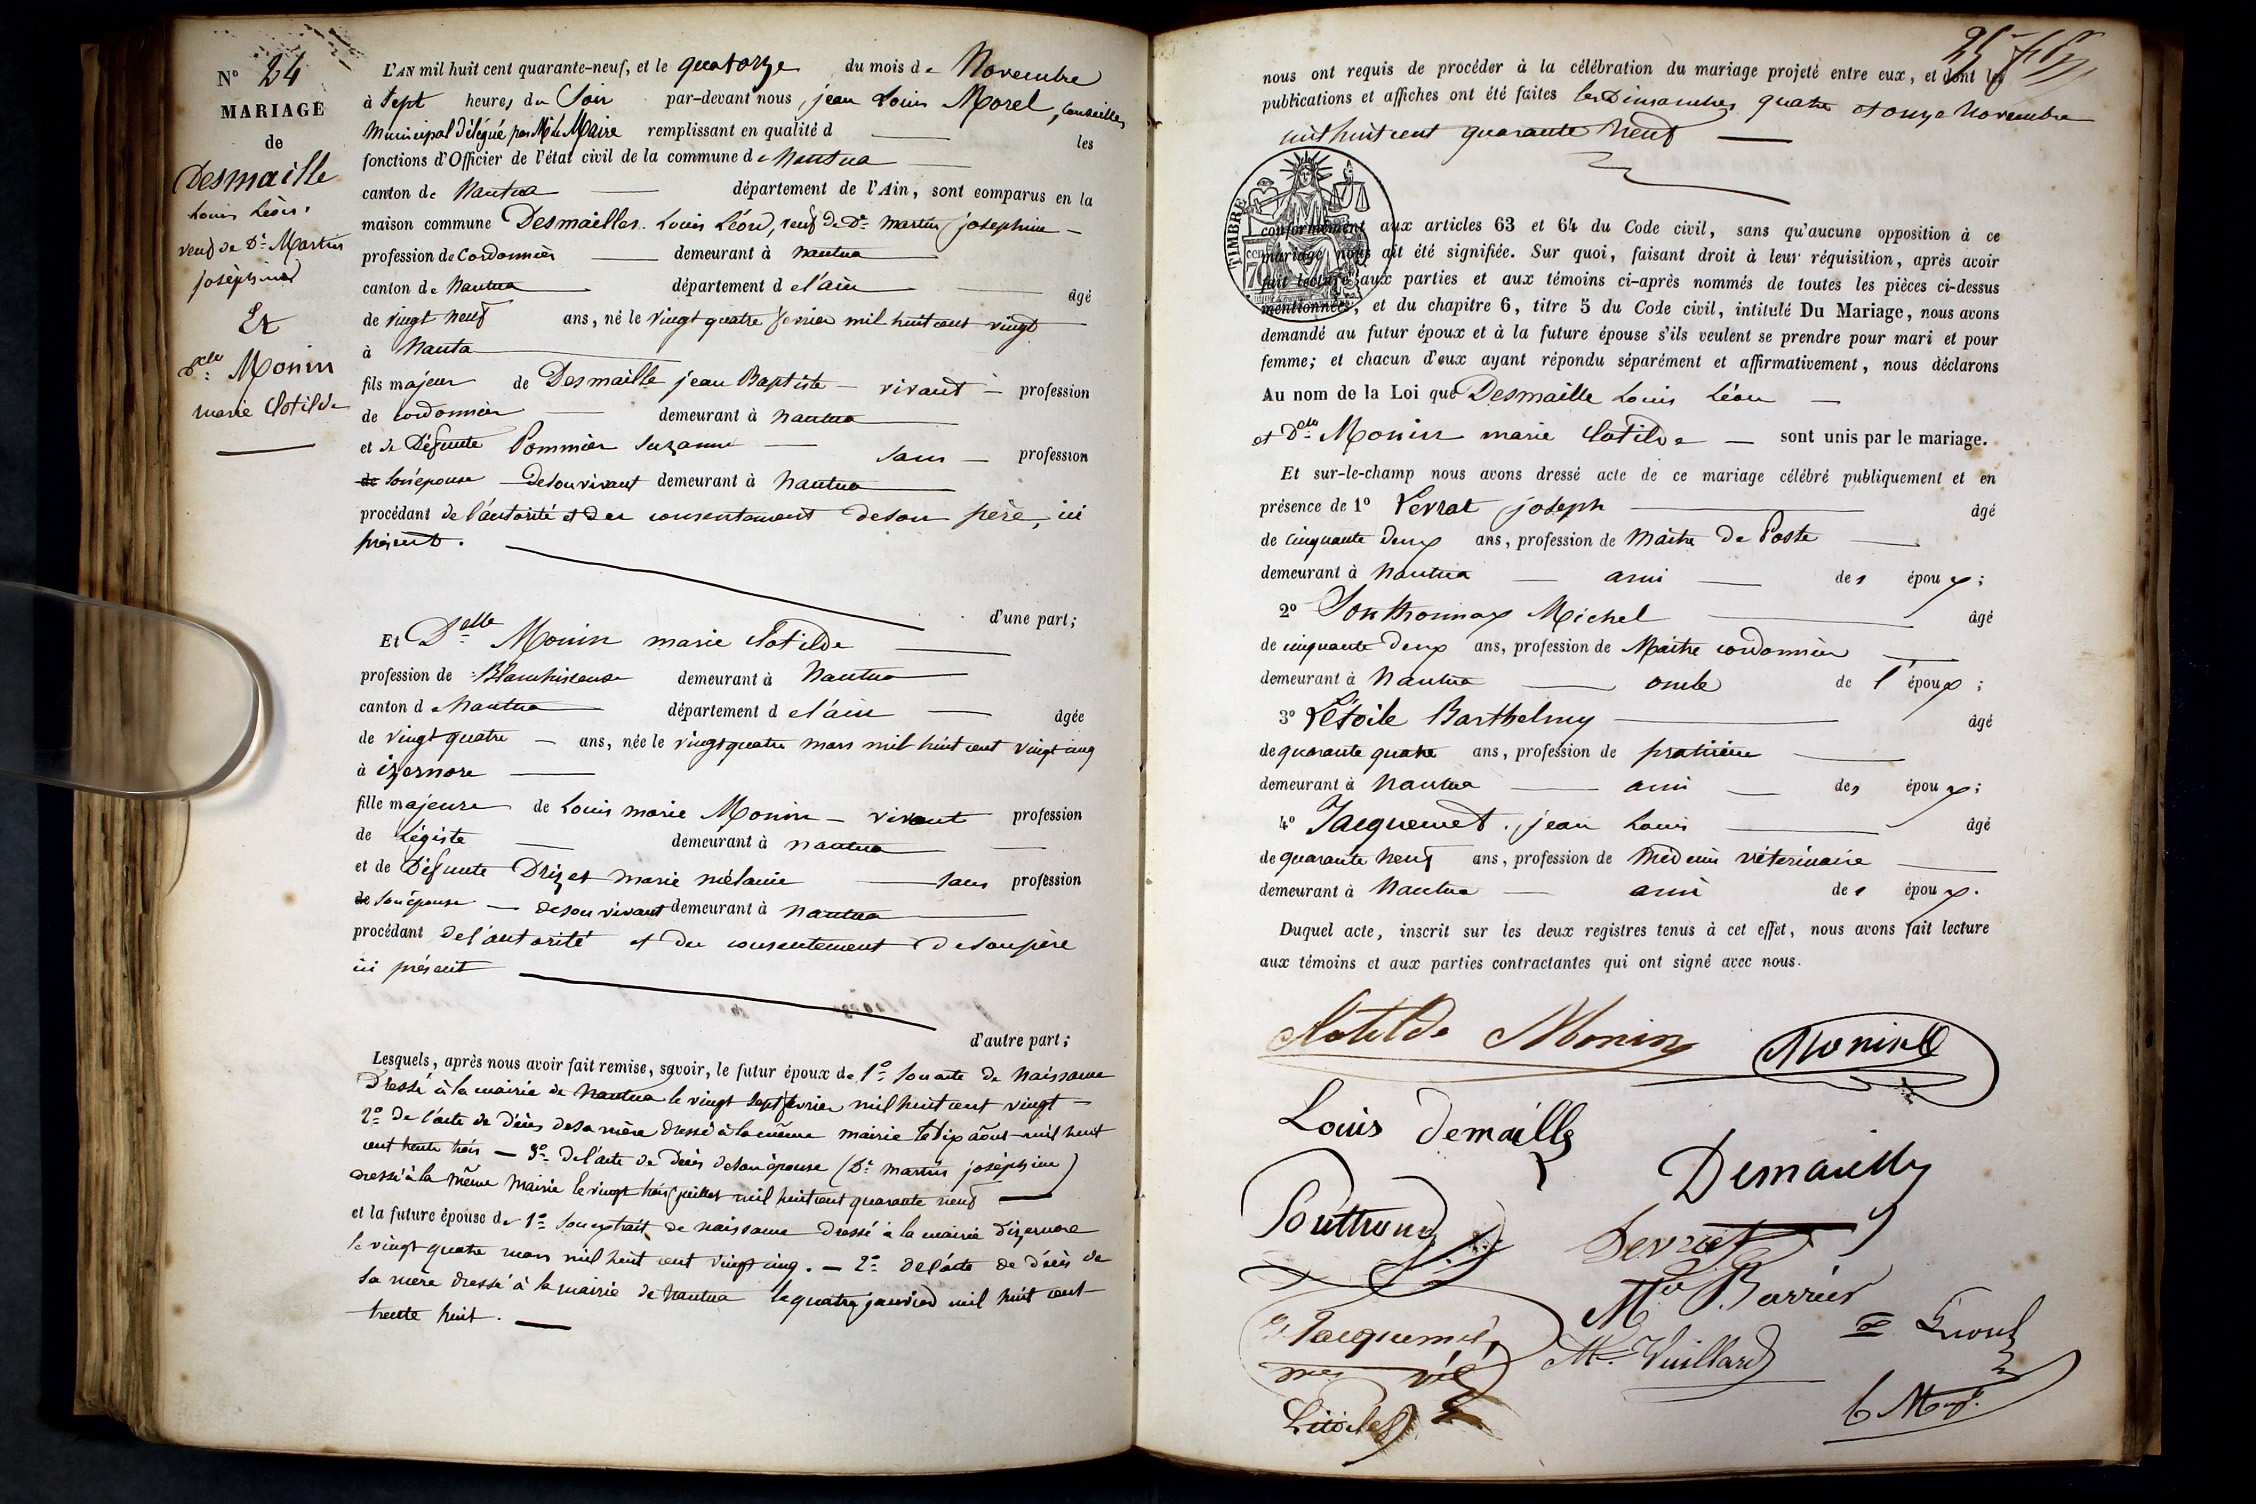 N° 24
MARIAGE
de
Desmaille
Louis Léon
veuf de De Martin
joséphine
Et
Delle Monin
marie Clotilde
L'AN mil huit cent quarante-neuf, et le quatorze du mois de Novembre
à Sept heures du Soir par-devant nous, jean Louis Morel, Conseiller
Municipal délégué par Mr le Maire remplissant en qualité d les
fonctions d'Officier de l'état civil de la commune de Nantua
canton de Nantua département de l'Ain, sont comparus en la
maison commune Desmailles Louis Léon, veuf de De martin joséphine
profession de Cordonnier demeurant à nantua
canton de Nantua département de l'ain âgé
de vingt neuf ans, né le vingt quatre fevrier mil huit cent vingt
à Nanta
fils majeur de Desmaille jean Baptiste vivant profession
de cordonnier demeurant à nantua
et de Défunte Pommier Suzanne sans profession
de son épouse de son vivant demeurant à nantua
procédant de l'autorité et du consentement de son père, ici
présent.
d'une part;
Et Delle Monin marie Clotilde
profession de Blanchisseuse demeurant à Nantua
canton de Nantua département de l'ain âgée
de vingt quatre ans, née le vingt quatre mars mil huit cent vingt cinq
à izernore
fille majeure de Louis marie Monin vivant profession
de Légiste demeurant à nantua
et de Défunte Drizet marie mélanie sans profession
de son épouse de son vivant demeurant à nantua
procédant de l'autorité et du consentement de son père
ici présent
d'autre part;
Lesquels, après nous avoir fait remise, savoir, le futur époux de 1° son acte de naissance
Dressé à la mairie de nantua le vingt sept fevrier mil huit cent vingt
2° de l'acte de décès de sa mère dressé à la même mairie le dix août mil huit
cent trente trois — 3° de l'acte de décès de son épouse (De martin joséphine)
dressé à la même Mairie le vingt trois juillet mil huit cent quarante neuf
et la future épouse de 1° son extrait de naissance dressé à la mairie d'izernore
le vingt quatre mars mil huit cent vingt cinq. — 2° de l'acte de décès de
sa mère dressé à la mairie de nantua le quatre janvier mil huit cent
trente huit.
nous ont requis de procéder à la célébration du mariage projeté entre eux, et dont les
publications et affiches ont été faites les Dimanches quatre et onze Novembre
mil huit cent quarante neuf
TIMBRE
conformément aux articles 63 et 64 du Code civil, sans qu'aucune opposition à ce
mariage nous ait été signifiée. Sur quoi, faisant droit à leur réquisition, après avoir
fait lecture aux parties et aux témoins ci-après nommés de toutes les pièces ci-dessus
mentionnées, et du chapitre 6, titre 5 du Code civil, intitulé Du Mariage, nous avons
demandé au futur époux et à la future épouse s'ils veulent se prendre pour mari et pour
femme; et chacun d'eux ayant répondu séparément et affirmativement, nous déclarons
Au nom de la Loi que Desmaille Louis Léon
et Delle Monin marie Clotilde sont unis par le mariage.
Et sur-le-champ nous avons dressé acte de ce mariage célébré publiquement et en
présence de 1° Levrat joseph âgé
de cinquante deux ans, profession de Maître de Poste
demeurant à Nantua ami des époux;
2° Sonthonnax Michel âgé
de cinquante deux ans, profession de Maître cordonnier
demeurant à Nantua oncle de l'époux;
3° Létoile Barthelmy âgé
de quarante quatre ans, profession de praticien
demeurant à Nantua ami des époux;
4° Jacquemet jean Louis âgé
de quarante neuf ans, profession de médecin vétérinaire
demeurant à Nantua ami des époux.
Duquel acte, inscrit sur les deux registres tenus à cet effet, nous avons fait lecture
aux témoins et aux parties contractantes qui ont signé avec nous.
Clotilde Monin Monin
Louis demaille
Demailly
Levrat
Barrier
Jacquemet
Vuillard